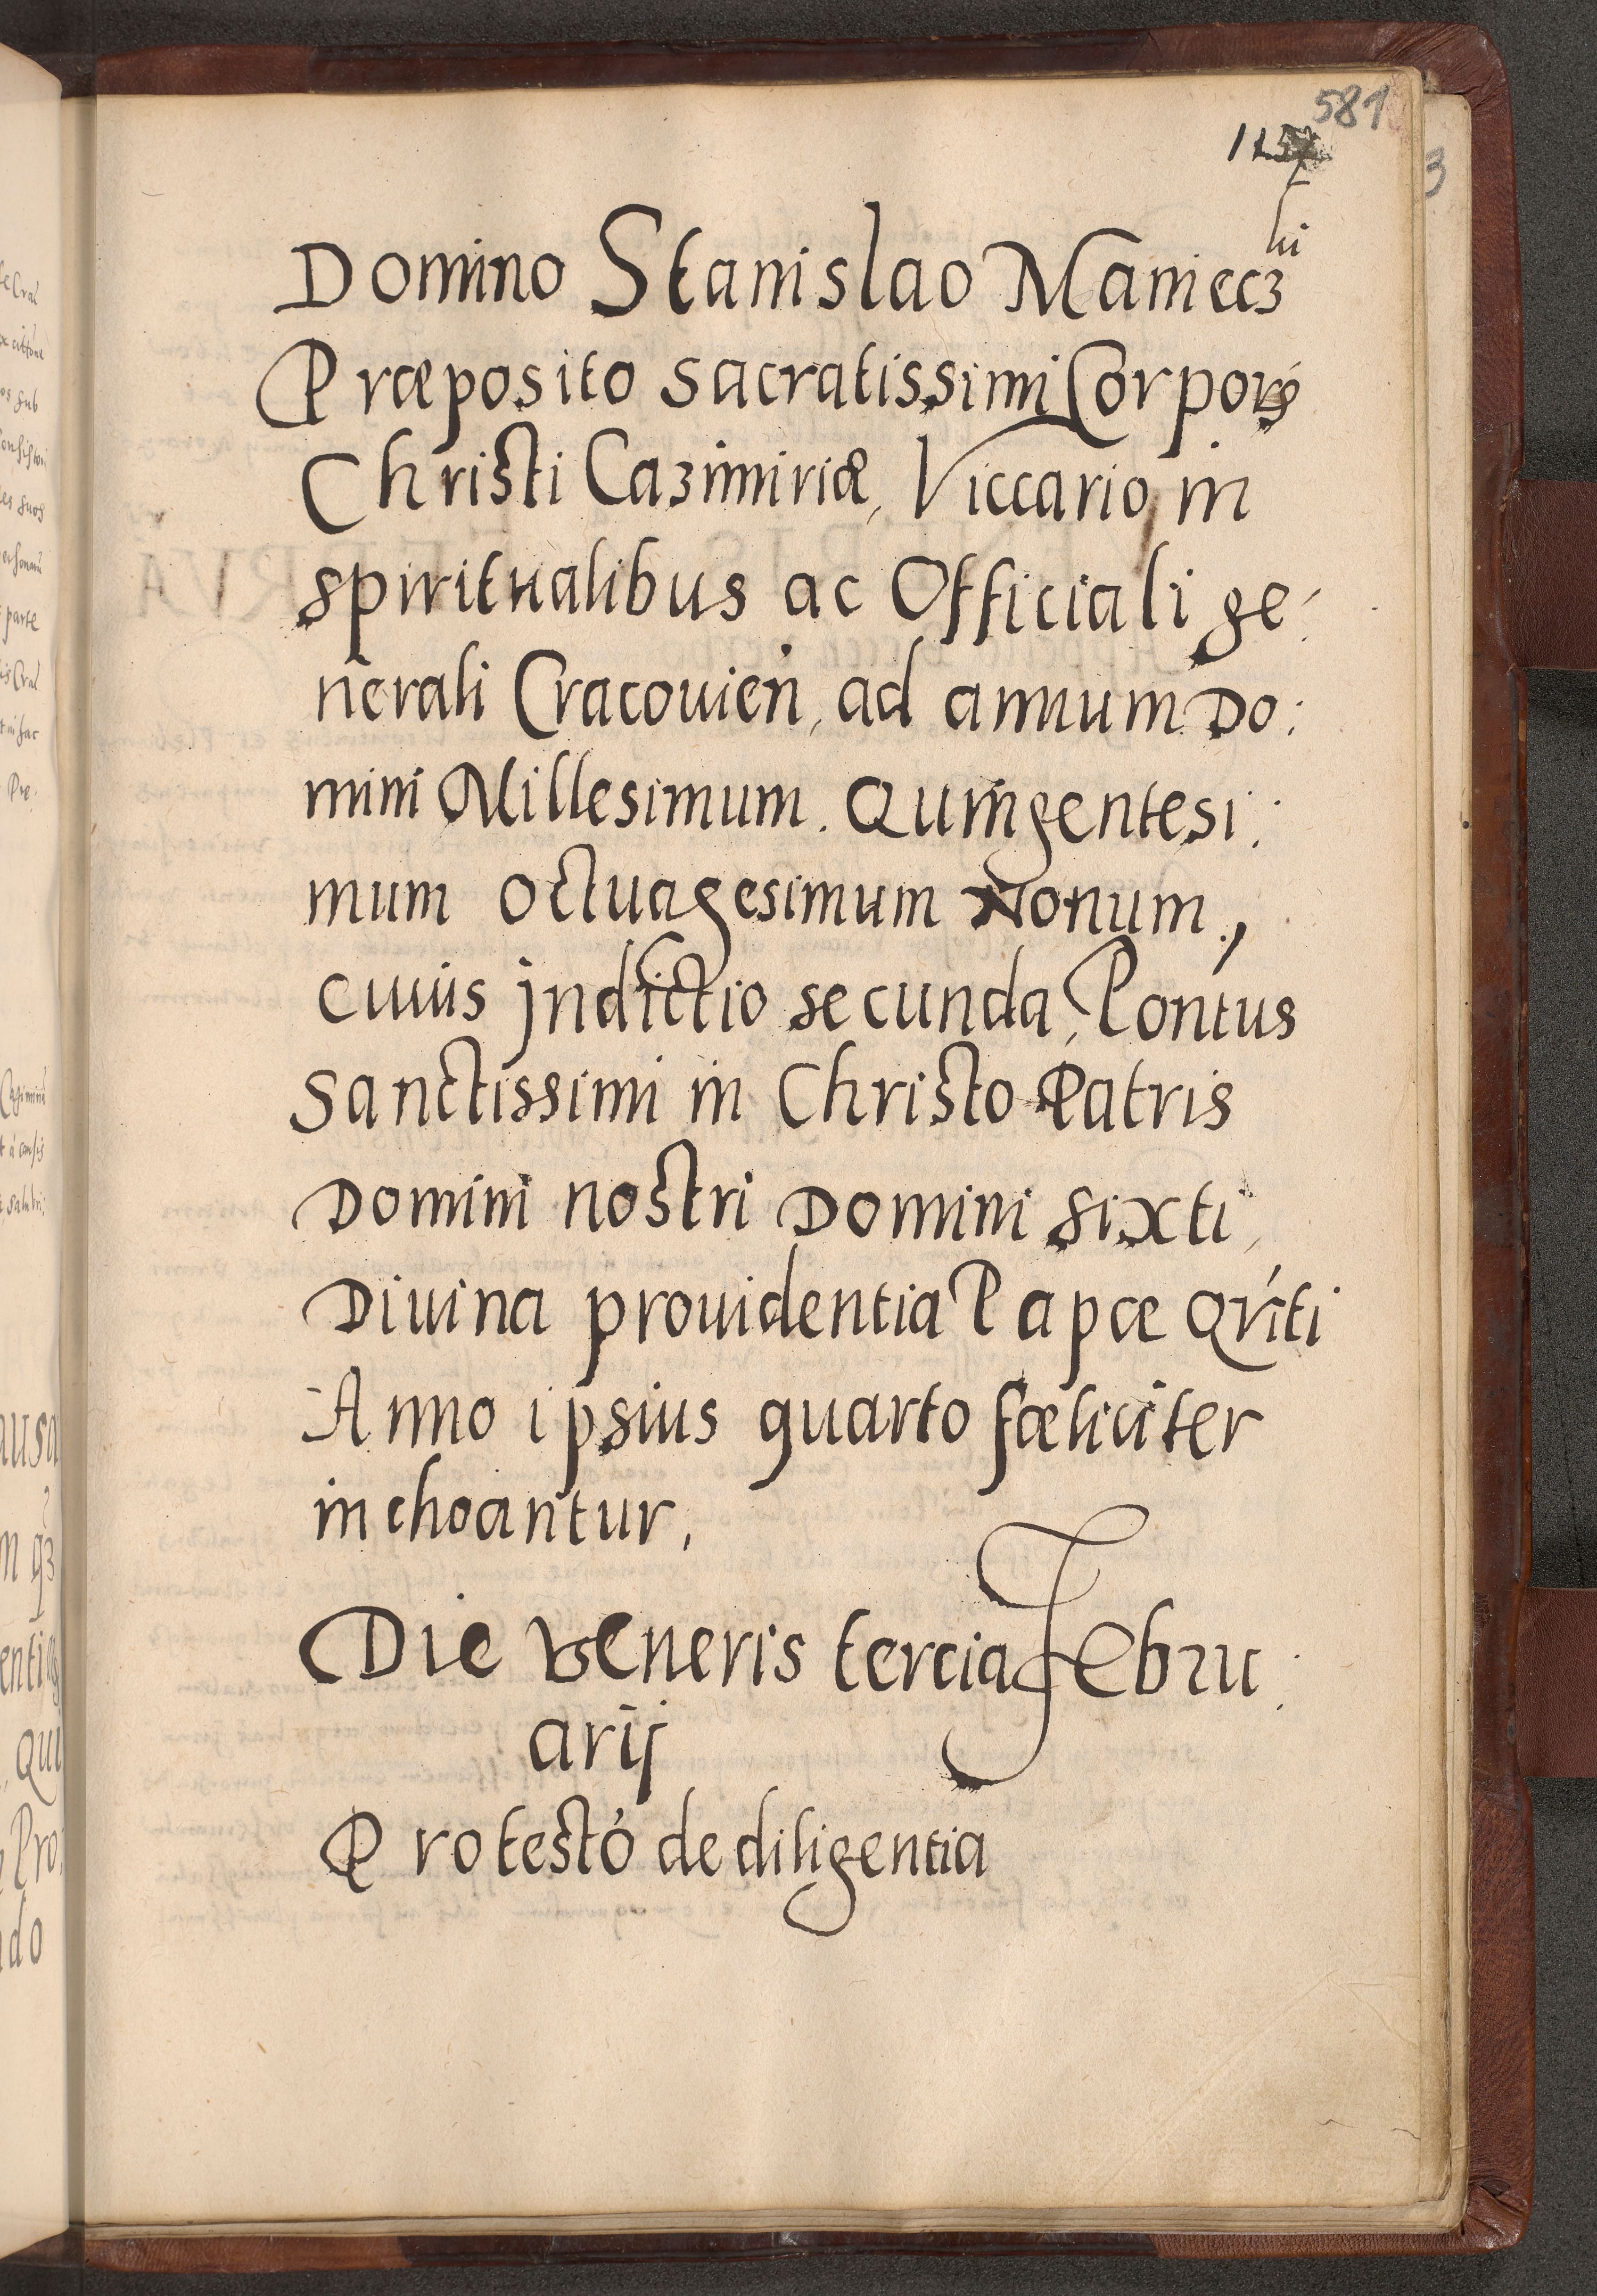 581
Domino Stanislao Manieczki
Præposito sacratissimi Corporis
Christi Cazimiriæ, Viccario in
spiritualibus ac Officiali ge:
nerali Cracouień, ad annum Do:
mini Millesimum. Quingentesi:
mum octuagesimum Nonum,
cuius Indictio secunda, Pontus
Sanctissimi in Christo Patris
Domini nostri Domini sixti,
Diuina prouidentia Papæ Qnti
Anno ipsius quarto fæliciter
inchoantur,
Die veneris tercia Febru:
arij
Protestó de diligentia